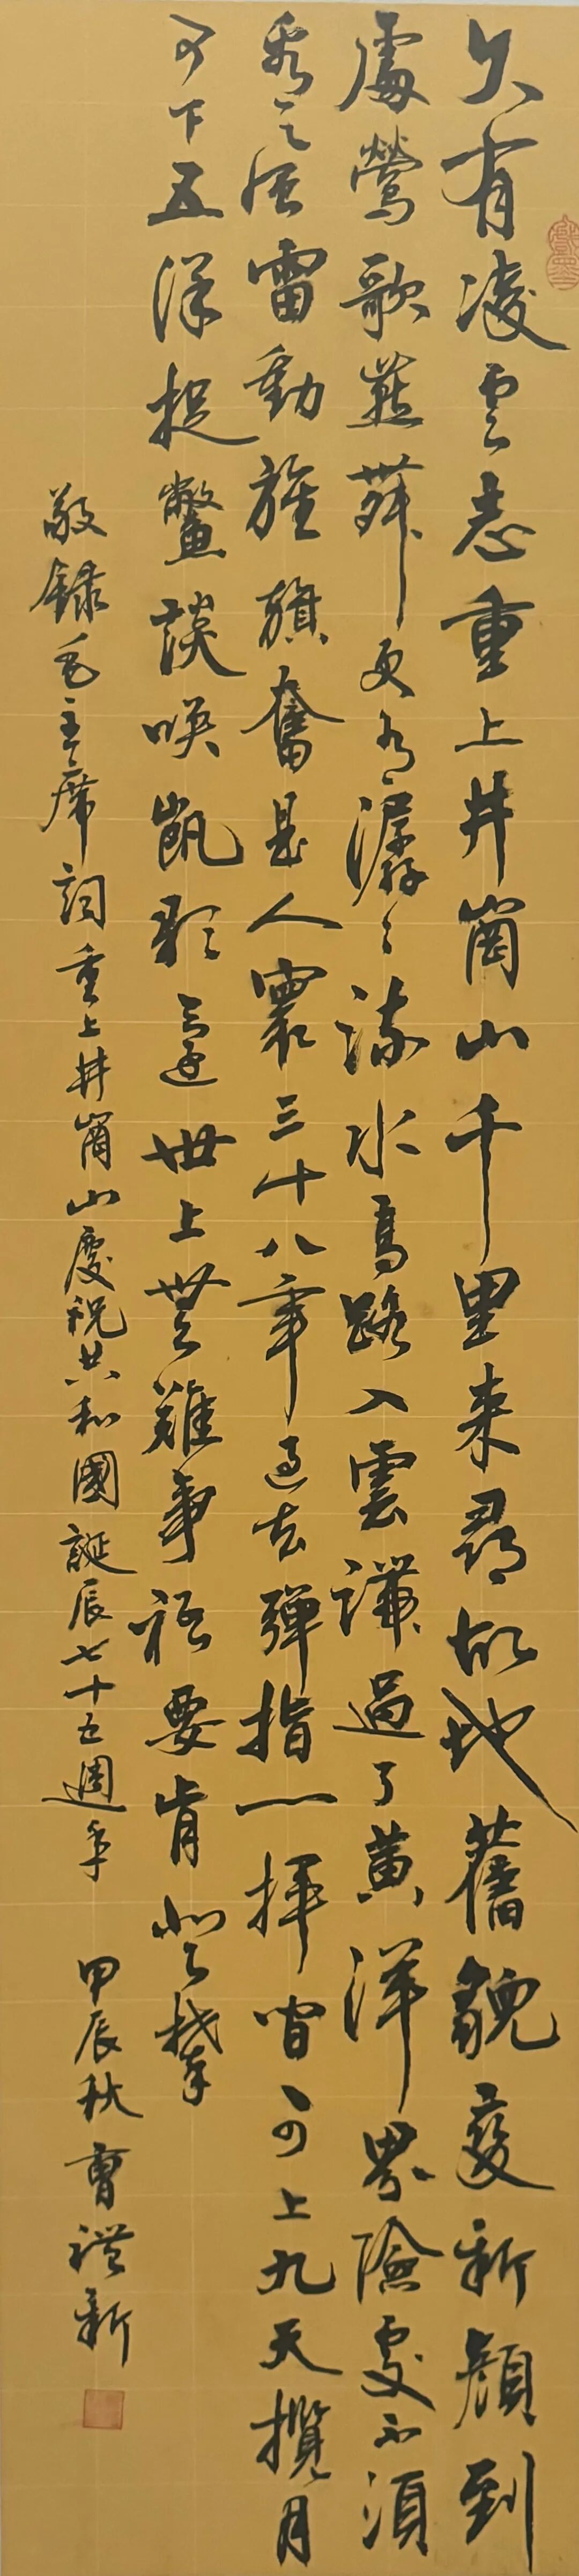 久有凌云志重上井崗山千里来尋故地舊貌變新顔到
處鶯歌燕舞更有潺々流水高路入雲端過了黄洋界險處不須
看風雷動旌旗奮是人寰三十八年過去彈指一揮間可上九天攬月
可下五洋捉鱉談咲凱歌還世上無難事祇要肯登攀
敬録毛主席詞重上井崗山慶祝共和國誕辰七十五週年 甲辰秋 曹禮新